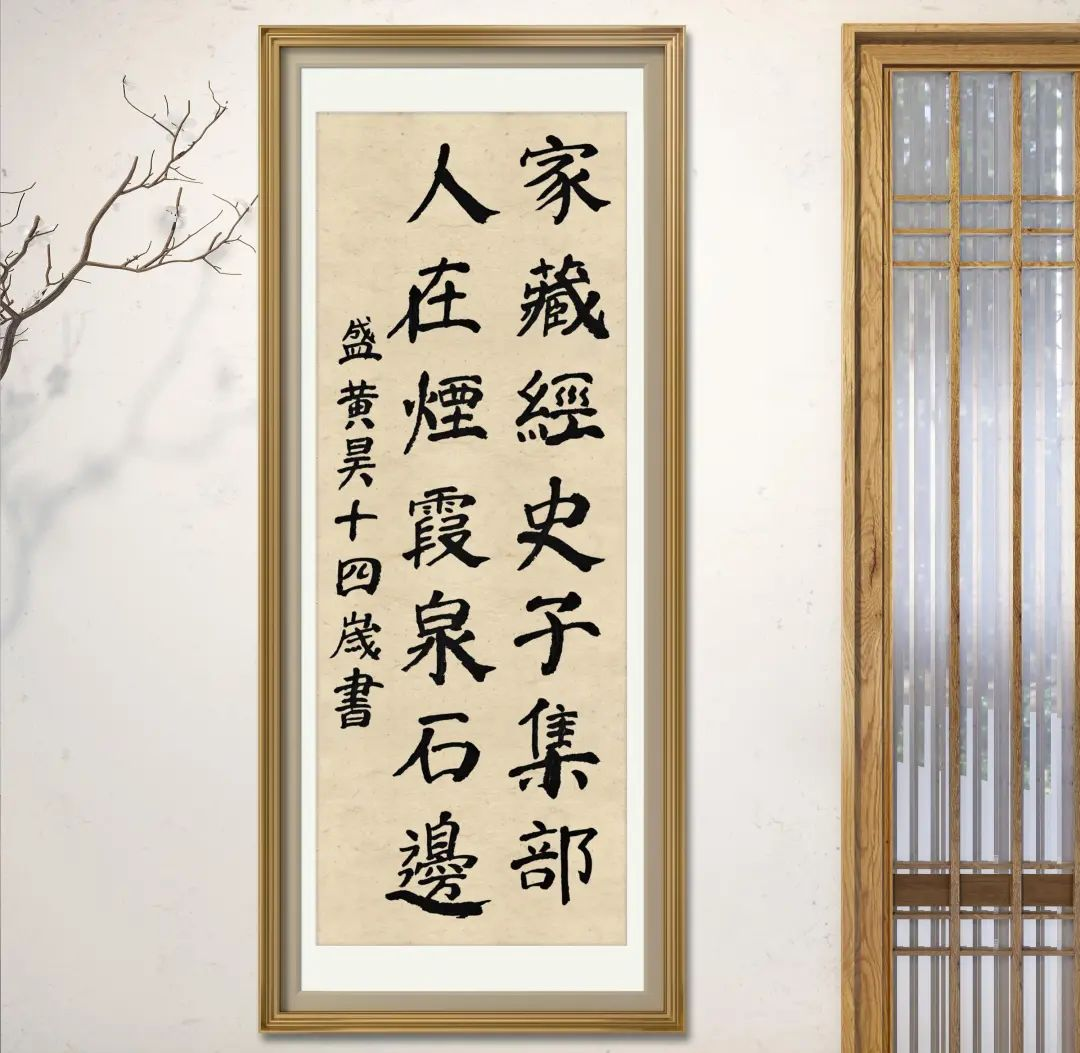 家藏經史子集部
人在煙霞泉石邊
盛黄昊十四歲書